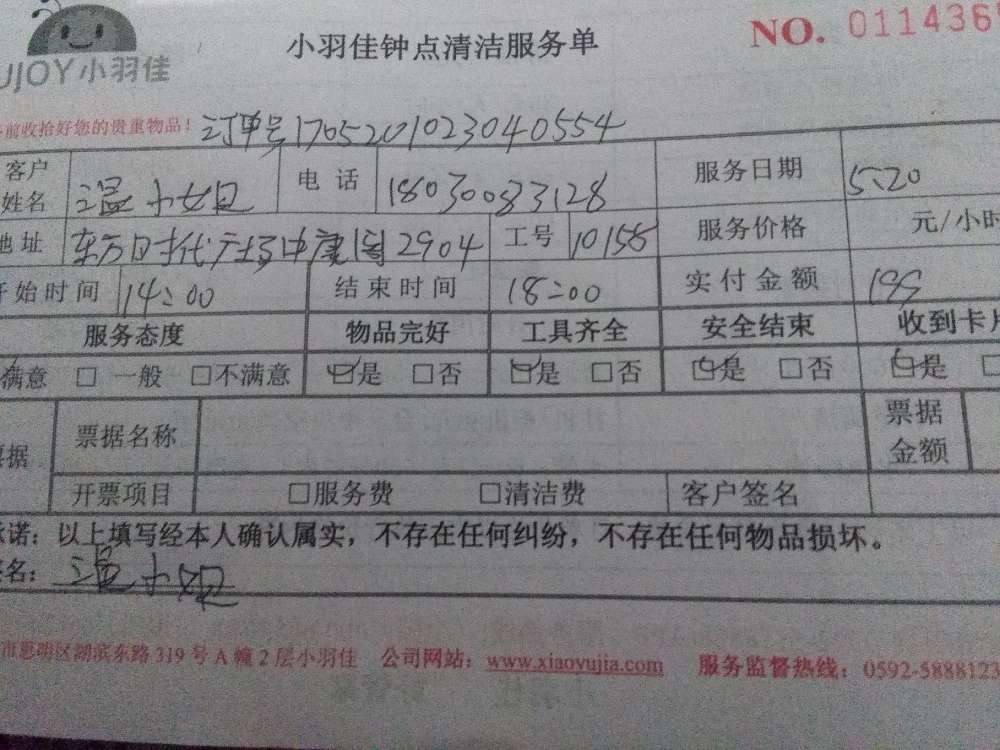 小羽佳钟点清洁服务单 NO. 011436
UJOY小羽佳
前收拾好您的贵重物品! 订单号170520102304 0554
客户姓名 温小姐 电话 18030083128 服务日期 5.20
地址 东方时代广场中康阁2904 工号 10155 服务价格 元/小时
开始时间 14:00 结束时间 18:00 实付金额 199
服务态度 物品完好 工具齐全 安全结束 收到卡片
满意 □ 一般 □不满意 ☑是 □否 ☑是 □否 ☑是 □否 ☑是
票据 票据名称 票据金额
开票项目 □服务费 □清洁费 客户签名
承诺：以上填写经本人确认属实，不存在任何纠纷，不存在任何物品损坏。
签名： 温小姐
市思明区湖滨东路319号A幢2层小羽佳 公司网站：www.xiaoyujia.com 服务监督热线：0592-5888123